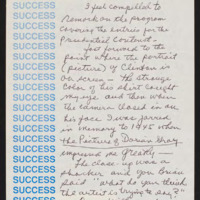 SUCCESS I feel compelled to
SUCCESS remark on the program
SUCCESS covering the entries for the
SUCCESS Presidential Contest.
SUCCESS fast forward to the
SUCCESS point where the portrait
SUCCESS (picture) of Clinton is
SUCCESS on screen — the strange
SUCCESS color of his shirt caught
SUCCESS my eye and then when
SUCCESS the camera closed in on
SUCCESS his face I was jarred
SUCCESS in memory to 1945 when
SUCCESS the Picture of Dorian Gray
SUCCESS impressed me greatly —
SUCCESS the close up was a
SUCCESS shocker and your brian
SUCCESS said "what do you think
SUCCESS the artist is trying to say?"